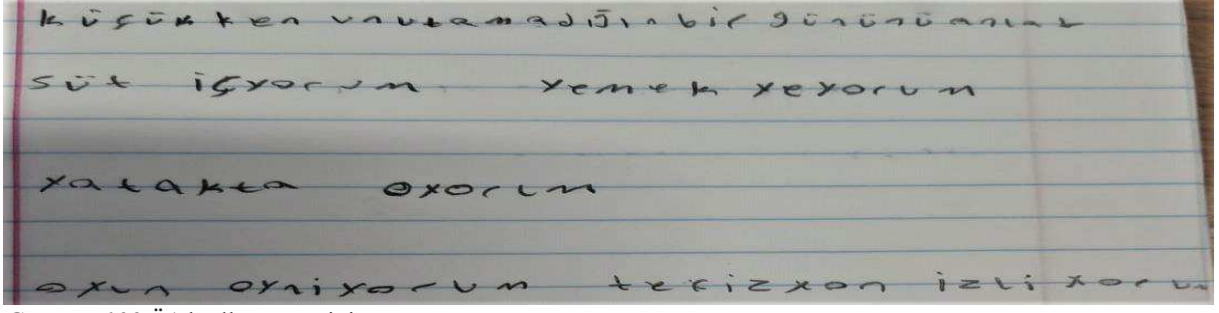 küçükken unutamadığın bir gününü anlat
süt içyorum yemek yeyorum
yatakta oyorum
oyun oyniyorum terizyon izliyorum